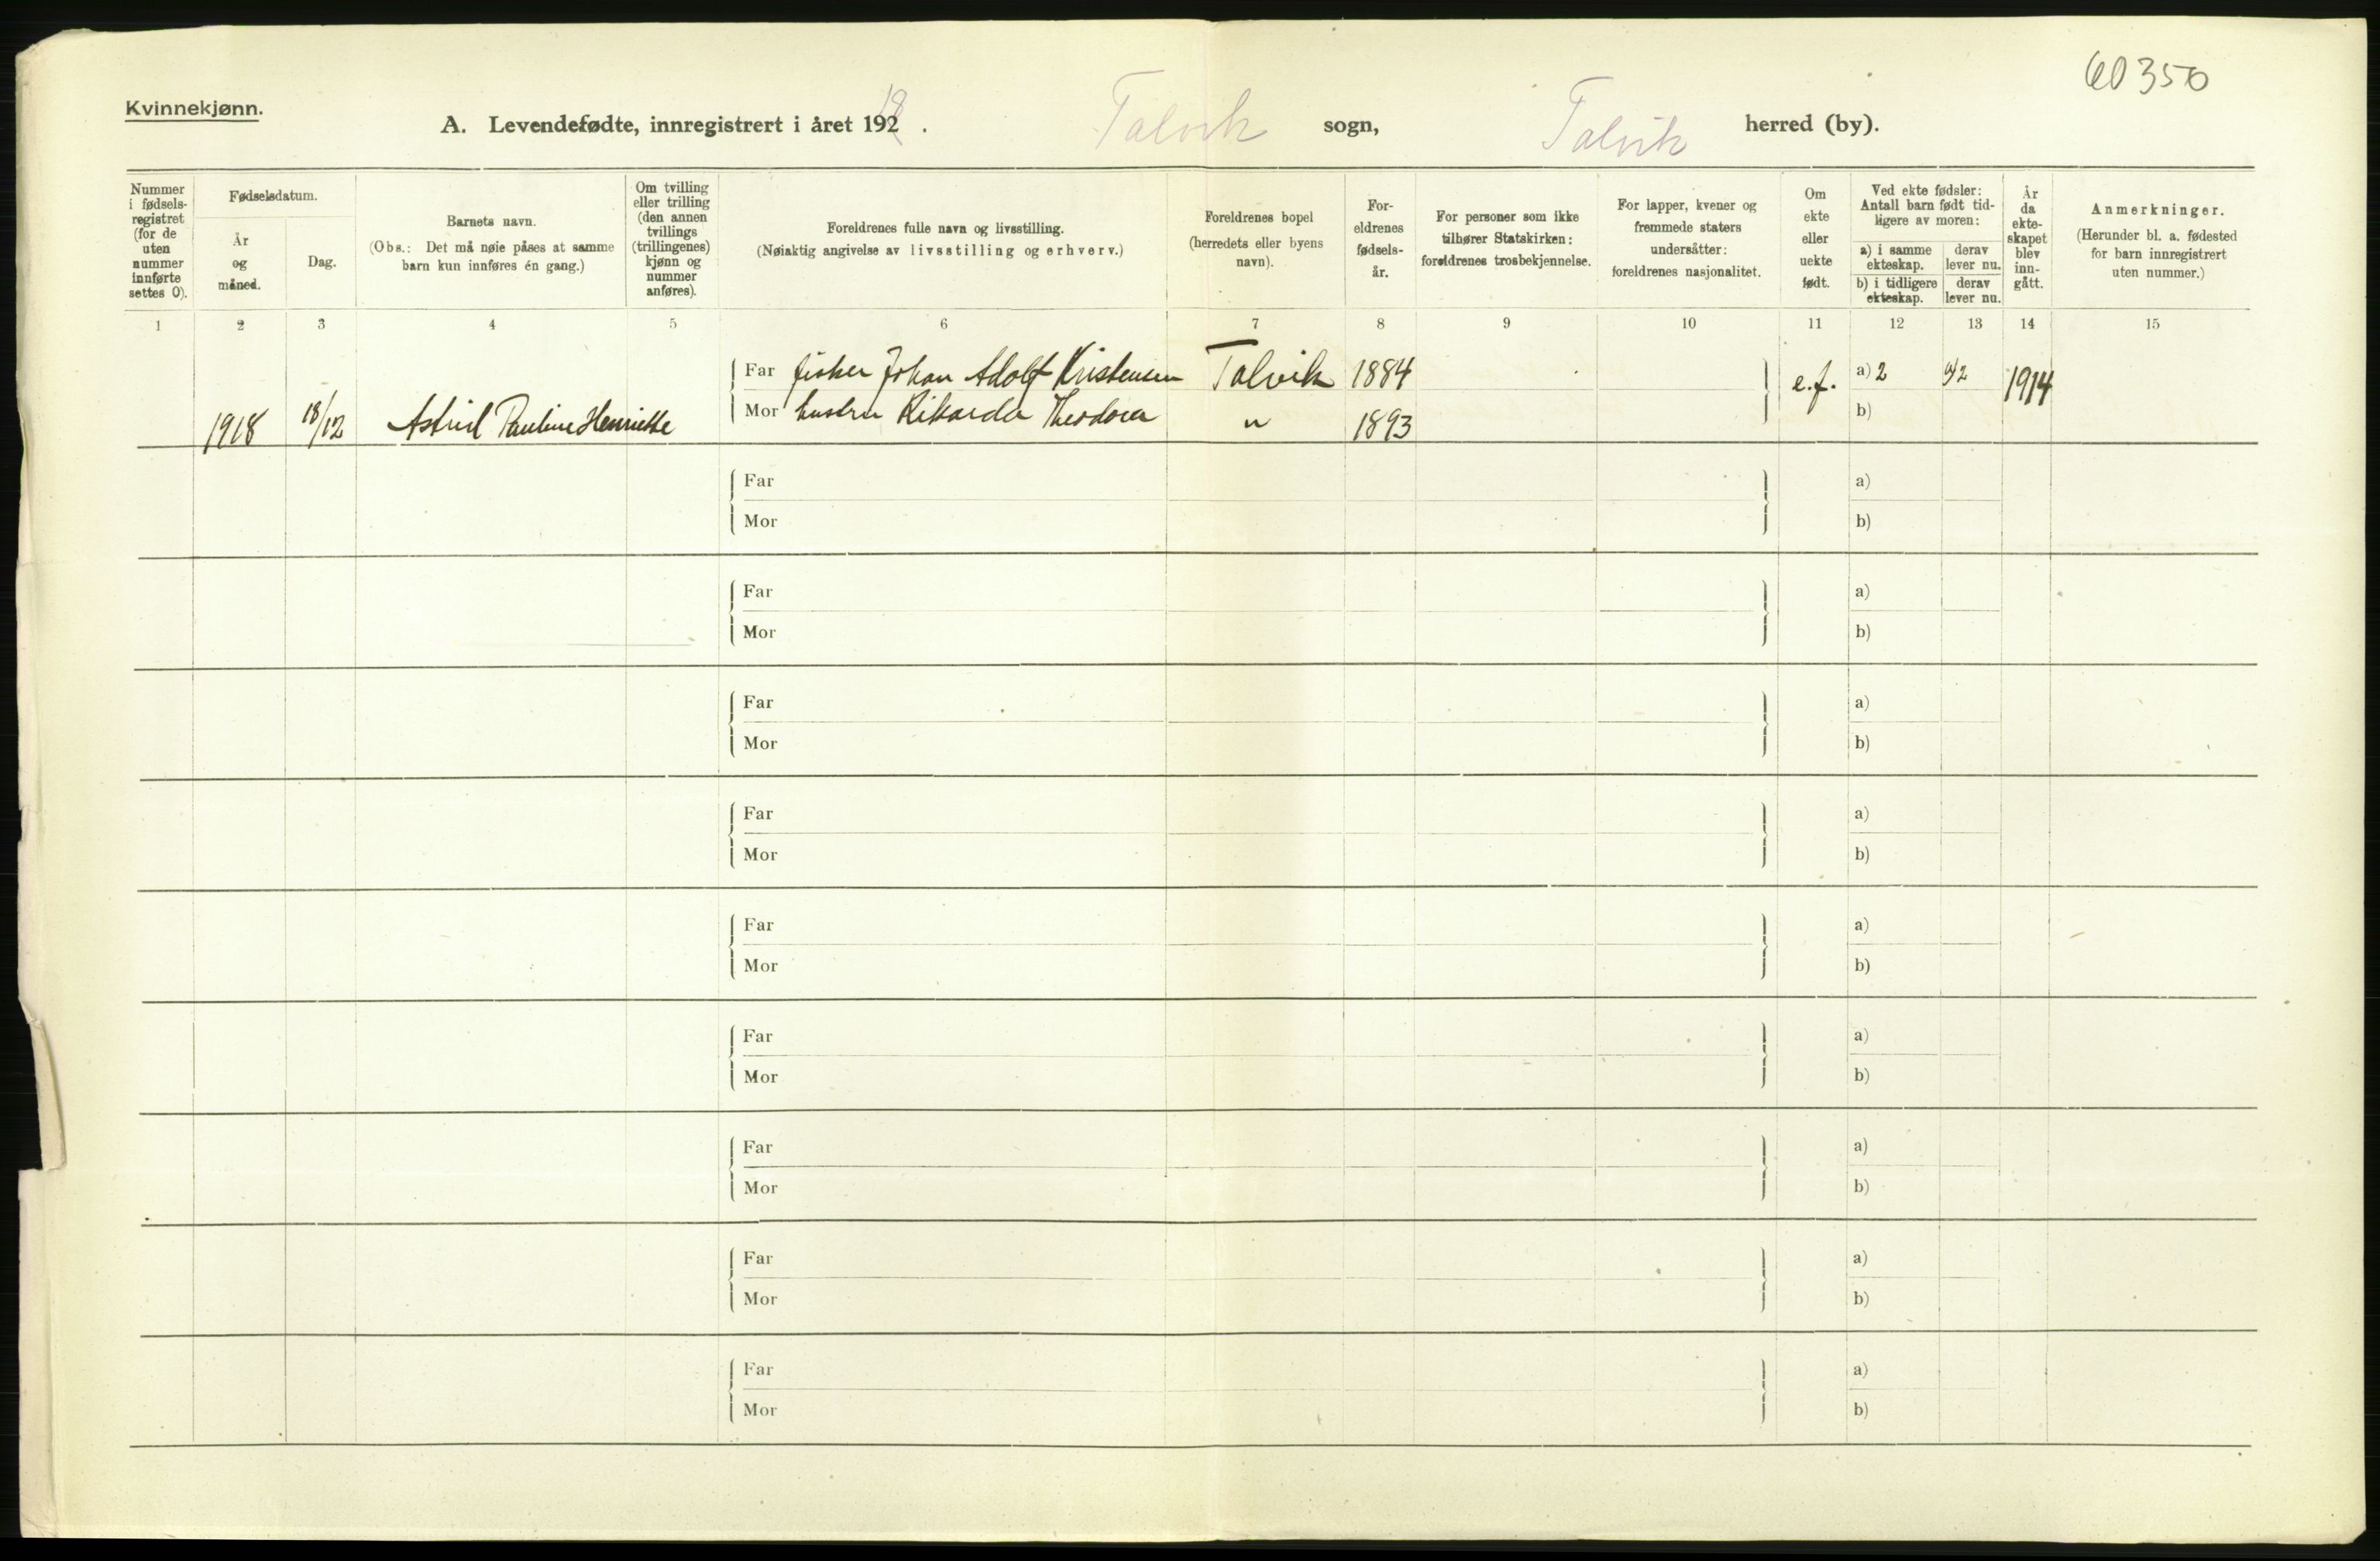 60350
Kvinnekjønn.
A. Levendefødte, innregistrert i året 1918. Talvik sogn, Talvik herred (by).
Nummer i fødselsregistret (for de uten nummer innførte settes 0).
Fødselsdatum.
År og måned.
Dag.
Barnets navn.
(Obs.: Det må nøie påses at samme barn kun innføres én gang.)
Om tvilling eller trilling (den annen tvillings (trillingenes) kjønn og nummer anføres).
Foreldrenes fulle navn og livsstilling.
(Nøiaktig angivelse av livsstilling og erhverv.)
Foreldrenes bopel (herredets eller byens navn).
Foreldrenes fødselsår.
For personer som ikke tilhører Statskirken: foreldrenes trosbekjennelse.
For lapper, kvener og fremmede staters undersåtter: foreldrenes nasjonalitet.
Om ekte eller uekte født.
Ved ekte fødsler: Antall barn født tidligere av moren:
a) i samme ekteskap. derav lever nu.
b) i tidligere ekteskap. derav lever nu.
År da ekteskapet blev inngått.
Anmerkninger.
(Herunder bl. a. fødested for barn innregistrert uten nummer.)
1 2 3 4 5 6 7 8 9 10 11 12 13 14 15
Far fisker Johan Adolf Kristensen Talvik 1884 e.f. a) 2 a) 2 1914
1918 18/12 Astrid Pauline Henriette Mor hustru Rikarda Theodora " 1893 b)
Far a)
Mor b)
Far a)
Mor b)
Far a)
Mor b)
Far a)
Mor b)
Far a)
Mor b)
Far a)
Mor b)
Far a)
Mor b)
Far a)
Mor b)
Far a)
Mor b)